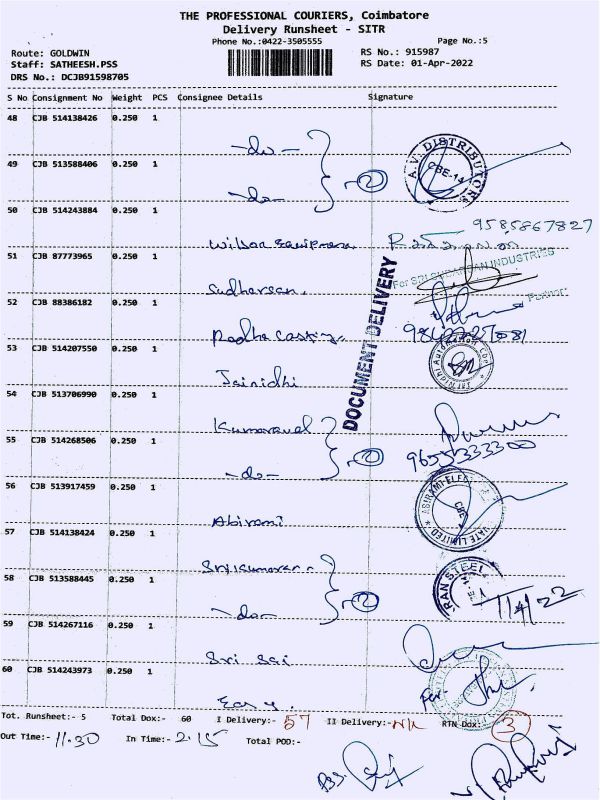 THE PROFESSIONAL COURIERS, Coimbatore
Delivery Runsheet - SITR
Phone No.:0422-3505555 Page No.:5
Route: GOLDWIN RS No.: 915987
Staff: SATHEESH.PSS RS Date: 01-Apr-2022
DRS No.: DCJB91598705
S No Consignment No Weight PCS Consignee Details Signature
48 CJB 514138426 0.250 1
-do-
49 CJB 513588406 0.250 1
-do- 2
A.V. DISTRIBUTORS
CBE-14
50 CJB 514243884 0.250 1
9585867827
51 CJB 87773965 0.250 1
For SRI SUDARSAN INDUSTRIES
Sudharsan.
Partner
52 CJB 88386182 0.250 1
DOCUMENT DELIVERY
Radha
53 CJB 514207550 0.250 1
Jainidhi
54 CJB 513706990 0.250 1
Kumaravel
55 CJB 514268506 0.250 1
-do- 2 9655333300
56 CJB 513917459 0.250 1
Abirami
57 CJB 514138424 0.250 1
58 CJB 513588445 0.250 1
-do- 2 1/4/22
59 CJB 514267116 0.250 1
Sri Sai
60 CJB 514243973 0.250 1
For
Tot. Runsheet:- 5 Total Dox:- 60 I Delivery:- 57 II Delivery:- Nil RTN Dox: 3
Out Time:- 11.30 In Time:- 2.15 Total POD:-